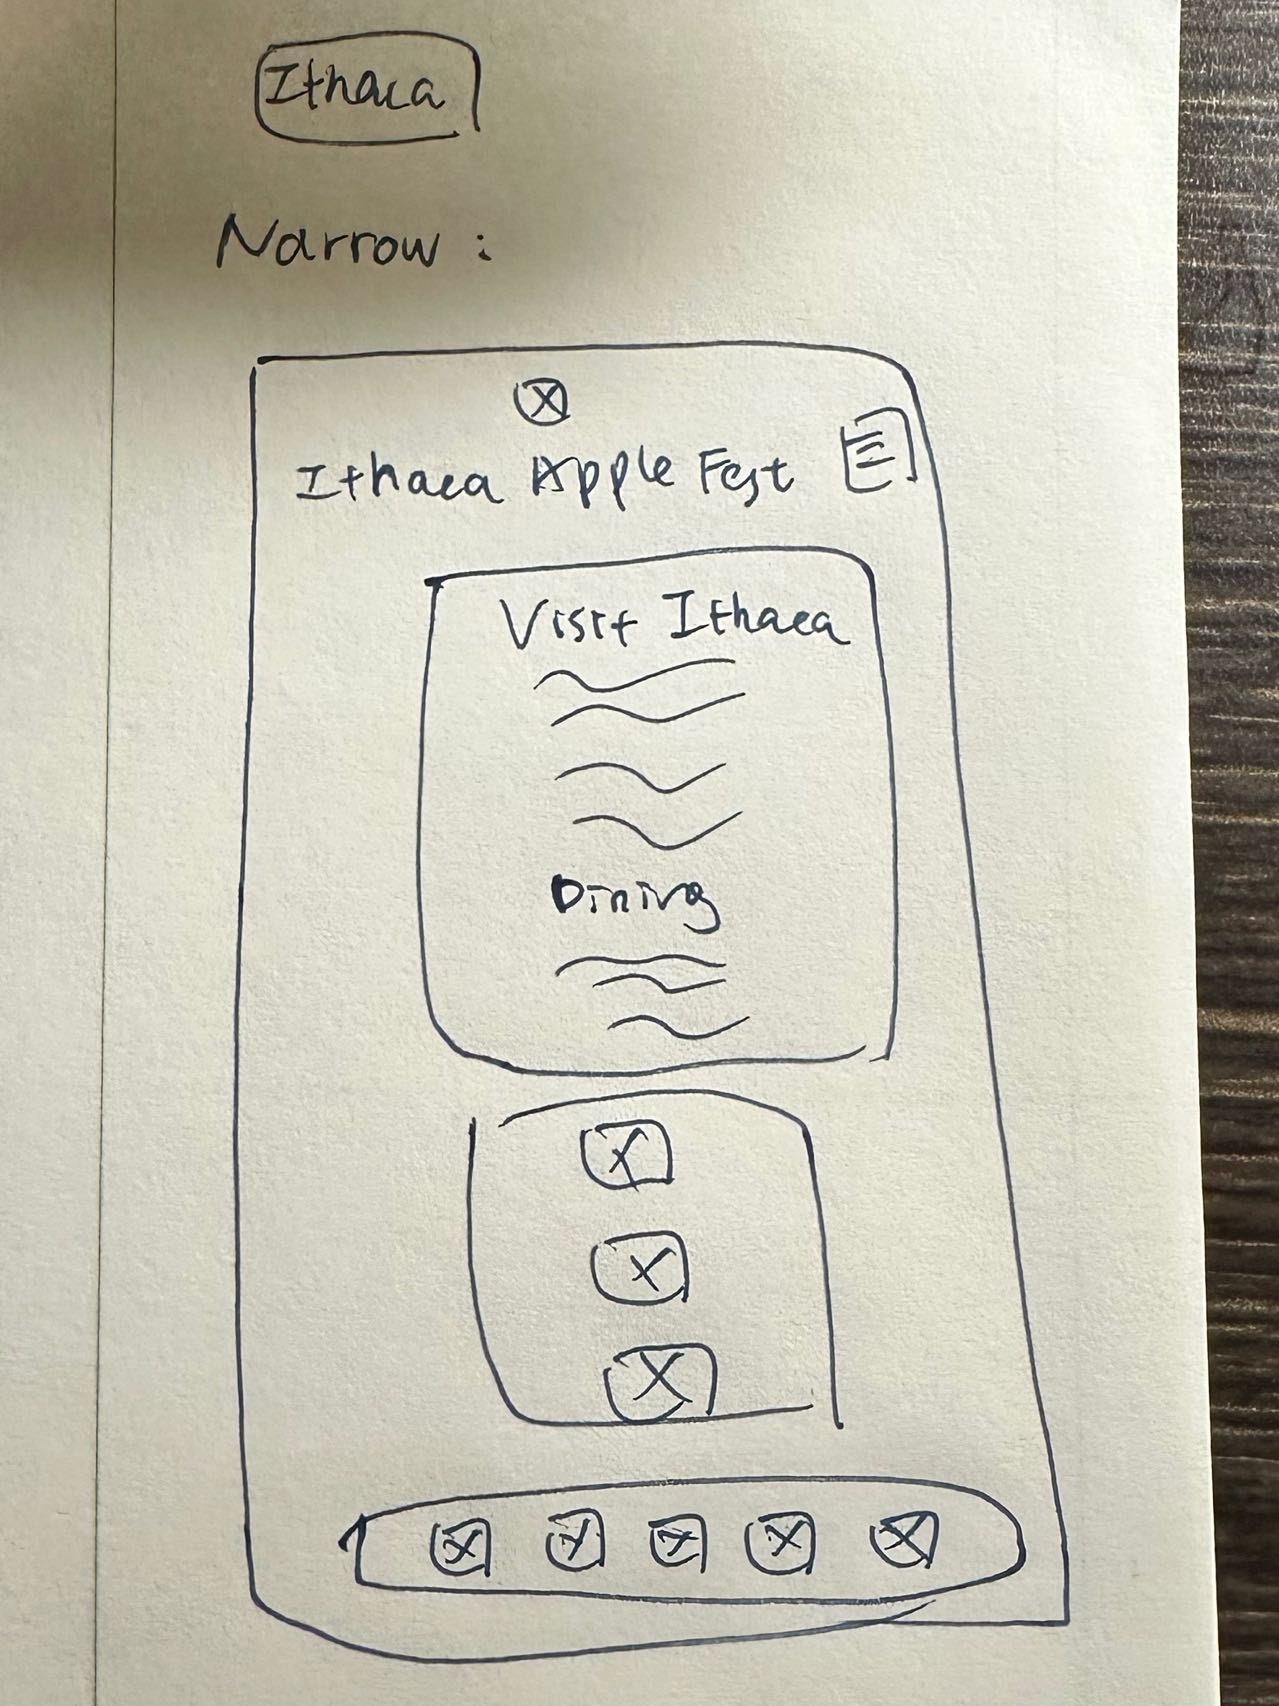 Ithaca
Narrow :
Ithaca Apple Fest
Visit Ithaca
Dining